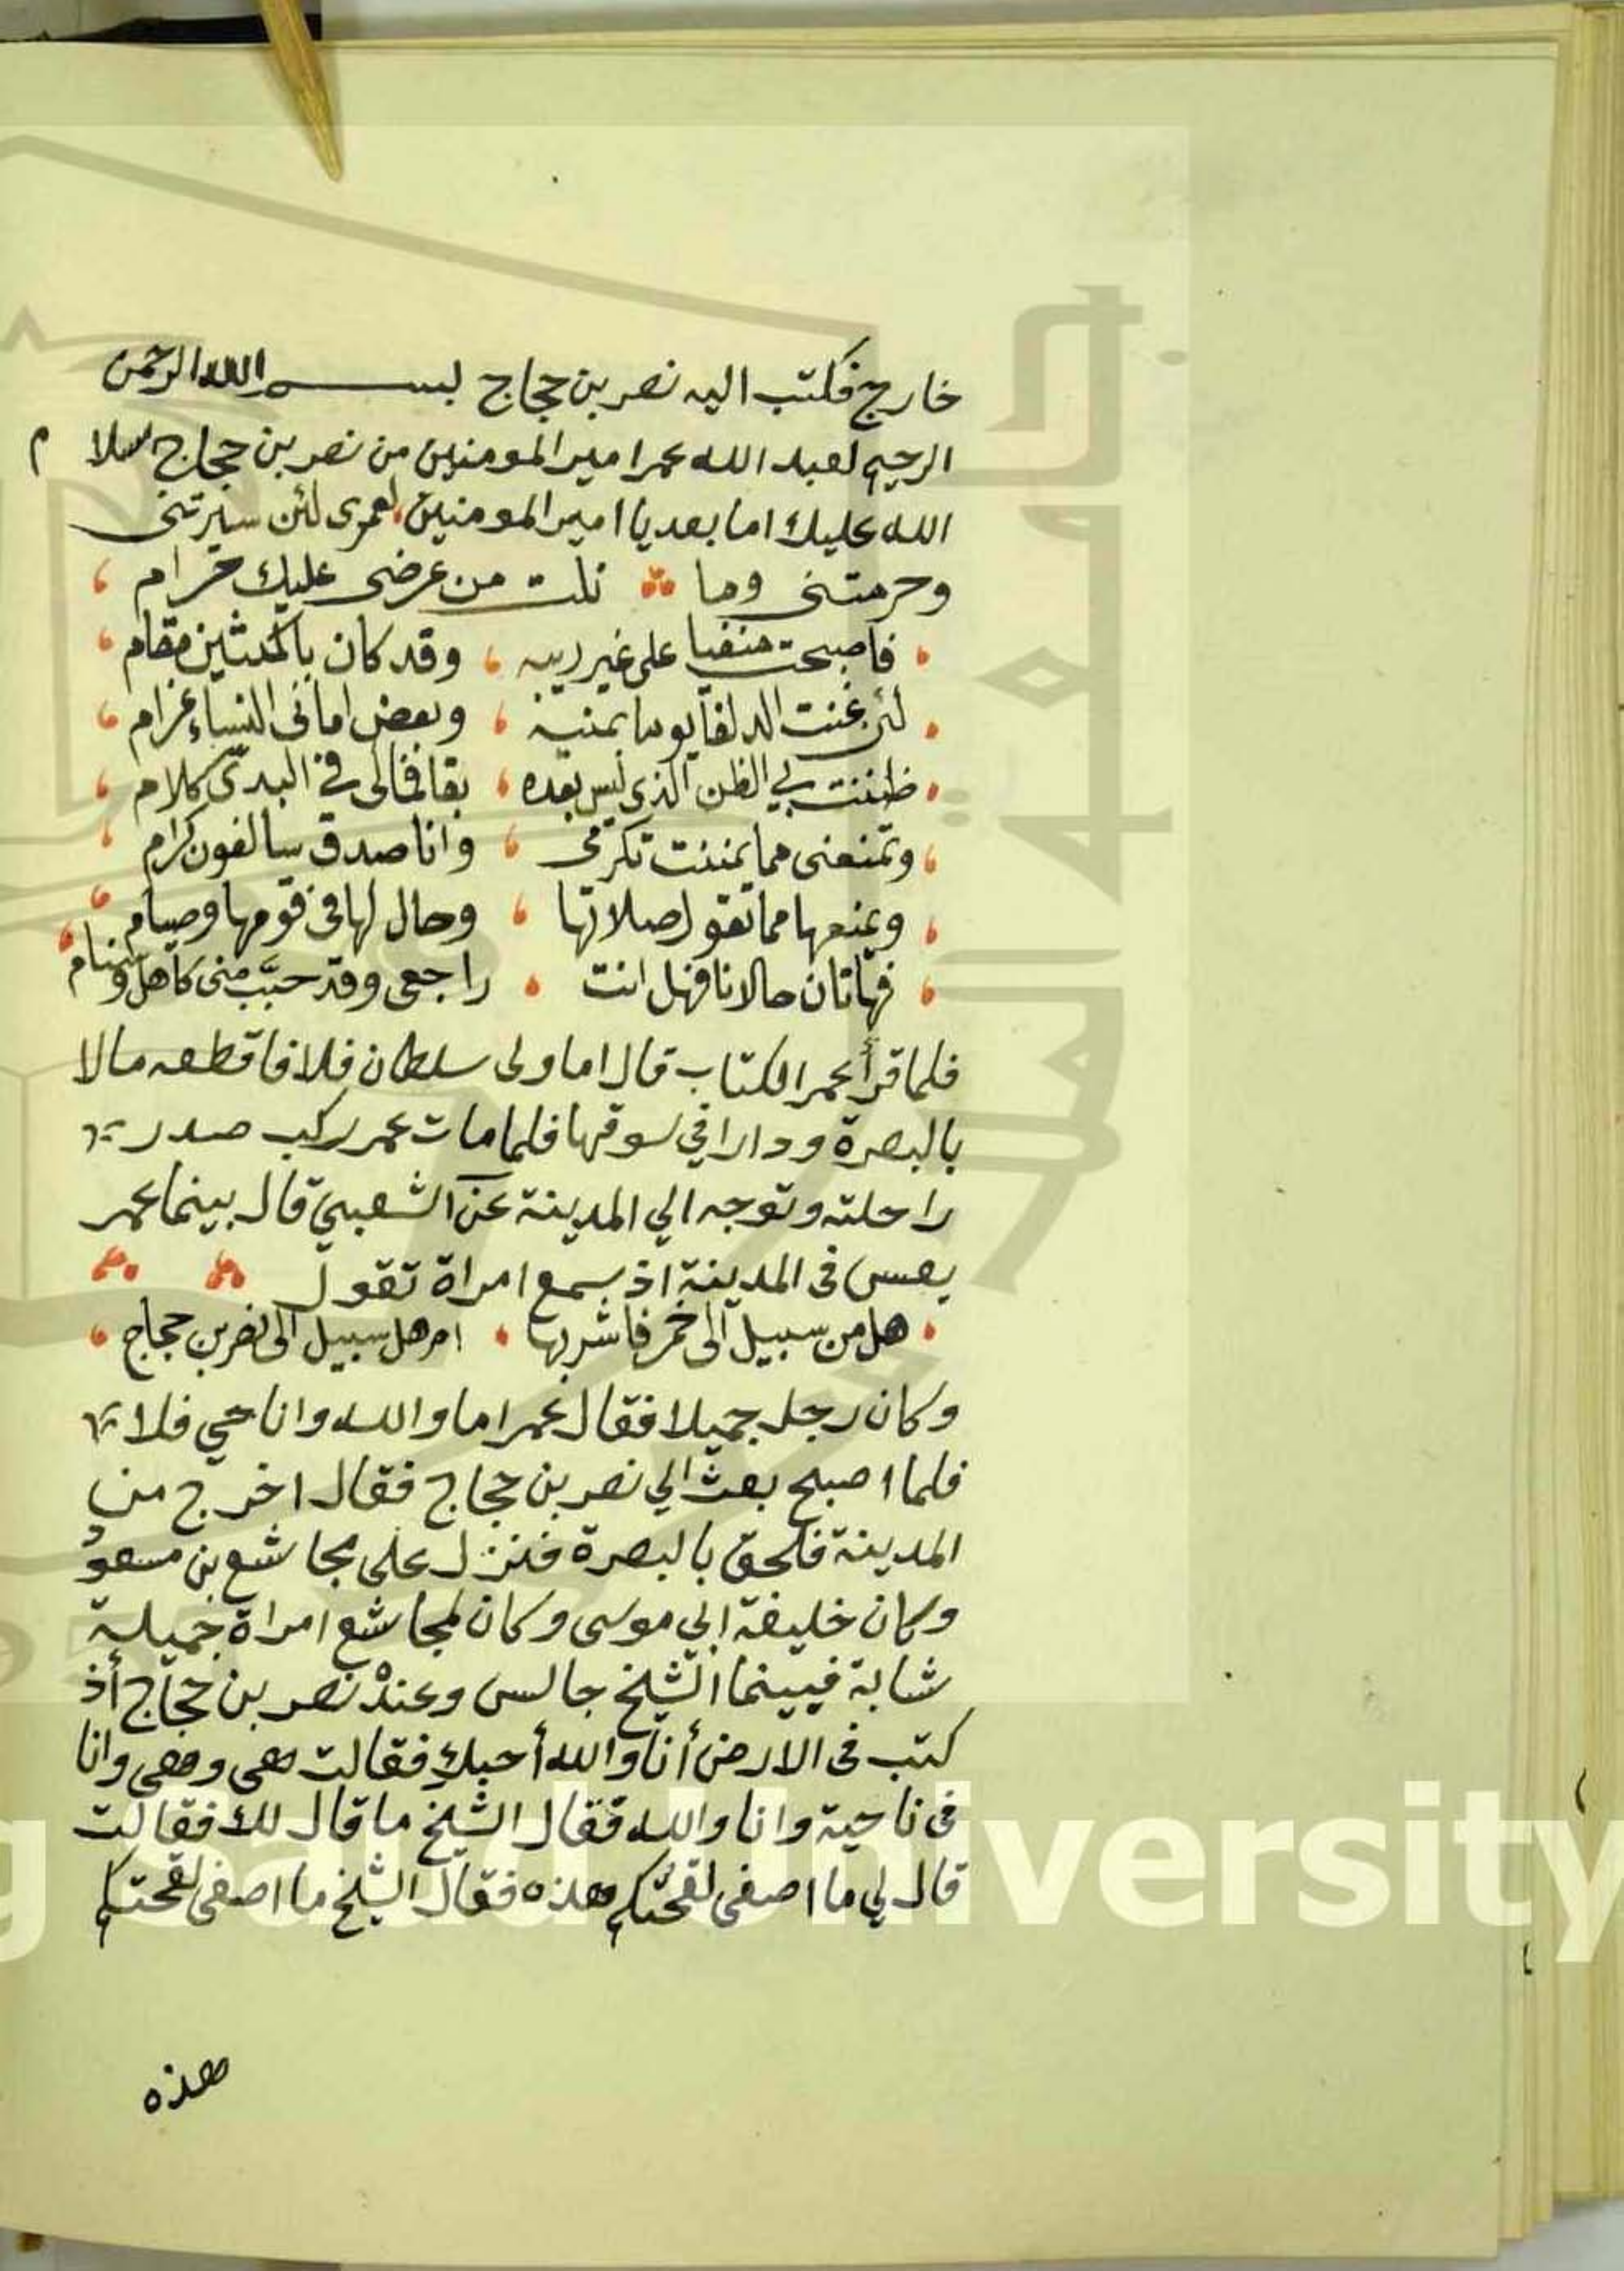 خارج فكتب اليه نصر بن حجاج بسم الله الرحمن
الرحيم لعبد الله عمر امير المومنين من نصر بن حجاج سلام
الله عليك اما بعد يا امير المومنين لعمرى لئن سيرتنى
وحرمتنى وما نلت من عرضى عليك حرام
فاصبحت منفيا على غير ريبه وقد كان بالمكتين مقام
لئن غنت الدلفا يوما بمنية وبعض امانى النساء غرام
ظننت بي الظن الذى ليس بعده بقا فمالى فى الندىّ كلام
وتمنعنى مما تمننت تكرمى وانا صدق سالفون كرام
ويمنعها مما تقول صلاتها وحال لها فى قومها وصيام
فهاتان حالانا فهل انت راجعى وقد حبّب منى كاهل وسنام
فلما قرأ عمر الكتاب قال اما ولى سلطان فلا فاقطعه مالا
بالبصرة ودارا في سوقها فلما مات عمر ركب صدر
راحلته وتوجه الي المدينة عن الشعبي قال بينما عمر
يعسس فى المدينة اذ سمع امراة تقول
هل من سبيل الى خمر فاشربها ام هل سبيل الى نصر بن حجاج
وكان رجل جميلا فقال عمر اما والله وانا حي فلا
فلما اصبح بعث الي نصر بن حجاج فقال اخرج من
المدينة فلحق بالبصرة فنزل على مجاشع بن مسعود
وكان خليفة ابي موسى وكان لمجاشع امراة جميلة
شابة فبينما الشيخ جالس وعنده نصر بن حجاج أذ
كتب فى الارض أنا والله أحبك فقالت هى وهى وانا
فى ناحية وانا والله فقال الشيخ ما قال لك فقالت
قال لي ما اصفى لقحتكم هذه فقال الشيخ ما اصفى لقحتكم
هذه
King Saud University